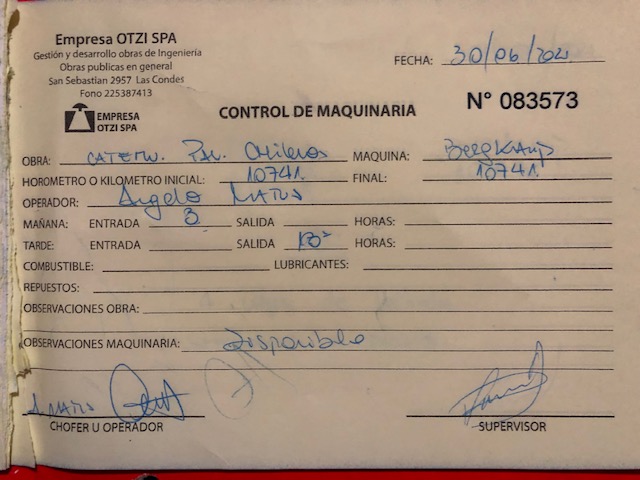 Empresa OTZI SPA
Gestión y desarrollo obras de Ingeniería
Obras publicas en general
San Sebastian 2957 Las Condes
Fono 225387413
FECHA: 30/06/2021
EMPRESA
OTZI SPA
CONTROL DE MAQUINARIA
N° 083573
OBRA: MAQUINA:
HOROMETRO O KILOMETRO INICIAL: 10741 FINAL: 10741
OPERADOR: Angelo Matus
MAÑANA: ENTRADA 8 SALIDA HORAS:
TARDE: ENTRADA SALIDA HORAS:
COMBUSTIBLE: LUBRICANTES:
REPUESTOS:
OBSERVACIONES OBRA:
OBSERVACIONES MAQUINARIA: Disponible
CHOFER U OPERADOR
SUPERVISOR